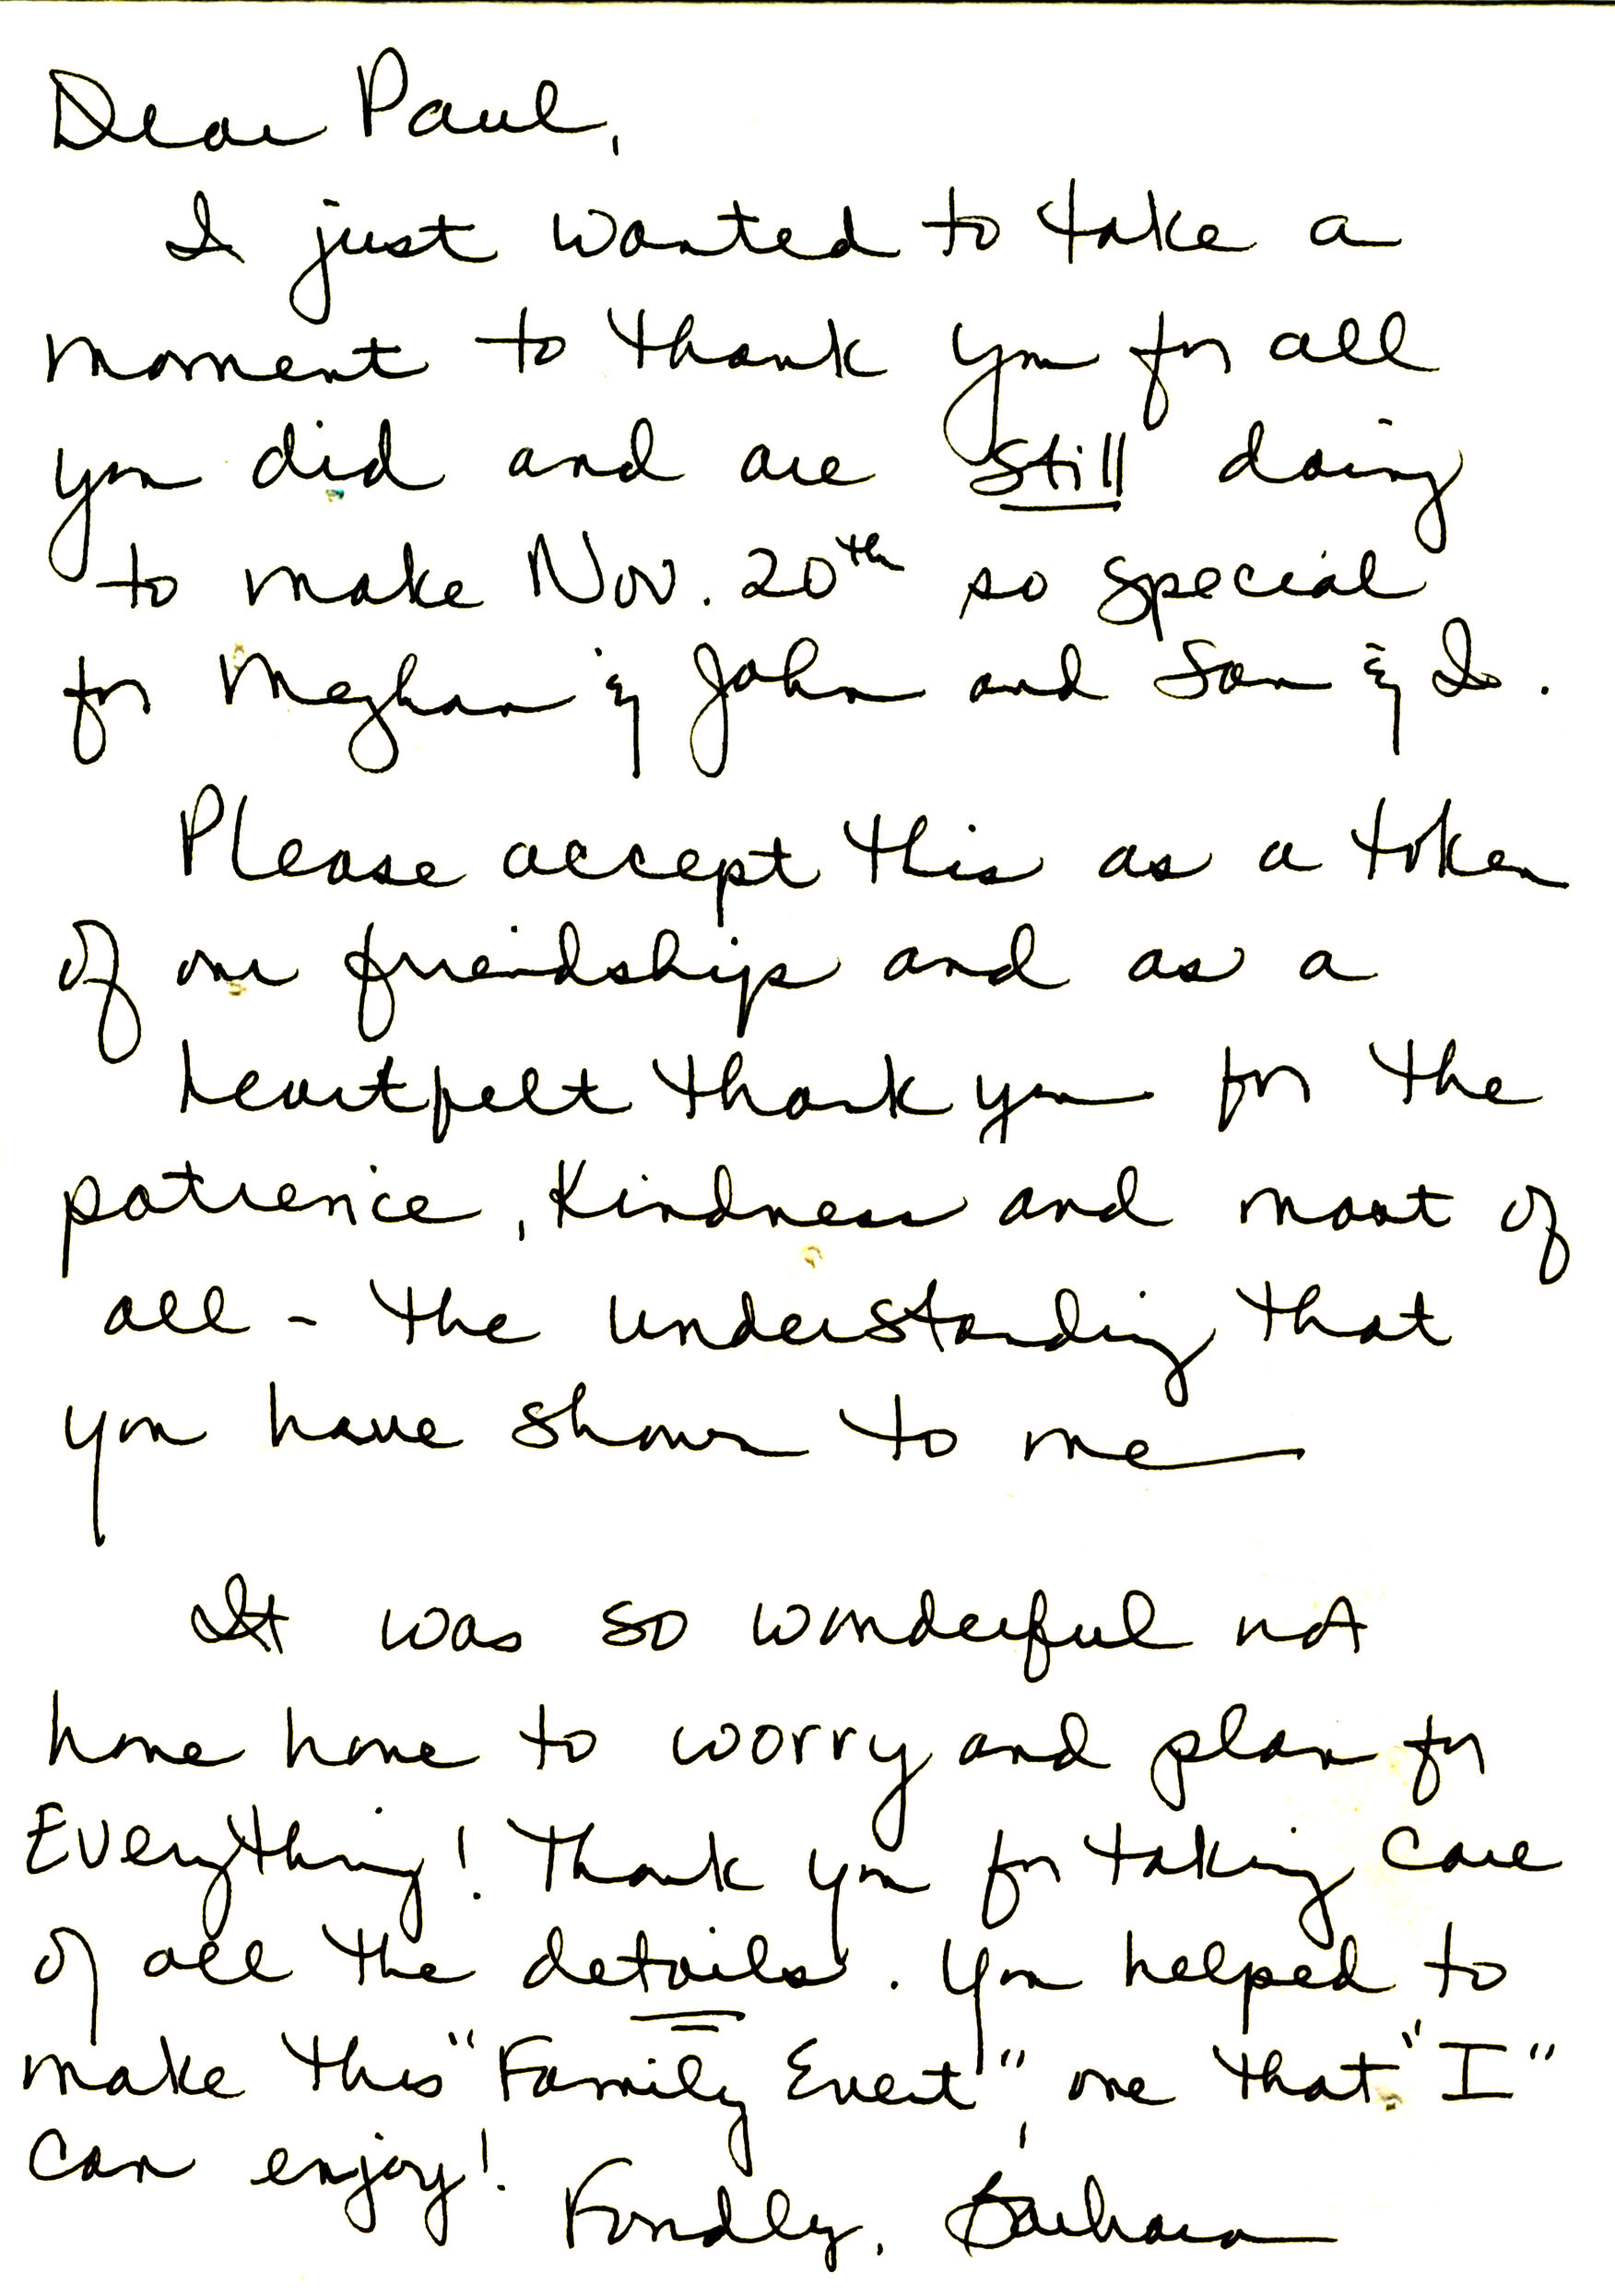 Dear Paul,
I just wanted to take a
moment to thank you for all
you did and are still doing
to make Nov. 20th so special
for Meghan & John and Sam & I.
Please accept this as a token
of our friendship and as a
heartfelt thank you for the
patience, kindness and most of
all - the understanding that
you have shown to me
It was so wonderful not
have have to worry and plan for
Everything! Thank you for taking care
of all the details. You helped to
make this "Family Event", one that "I"
can enjoy!
Fondly, Barbara